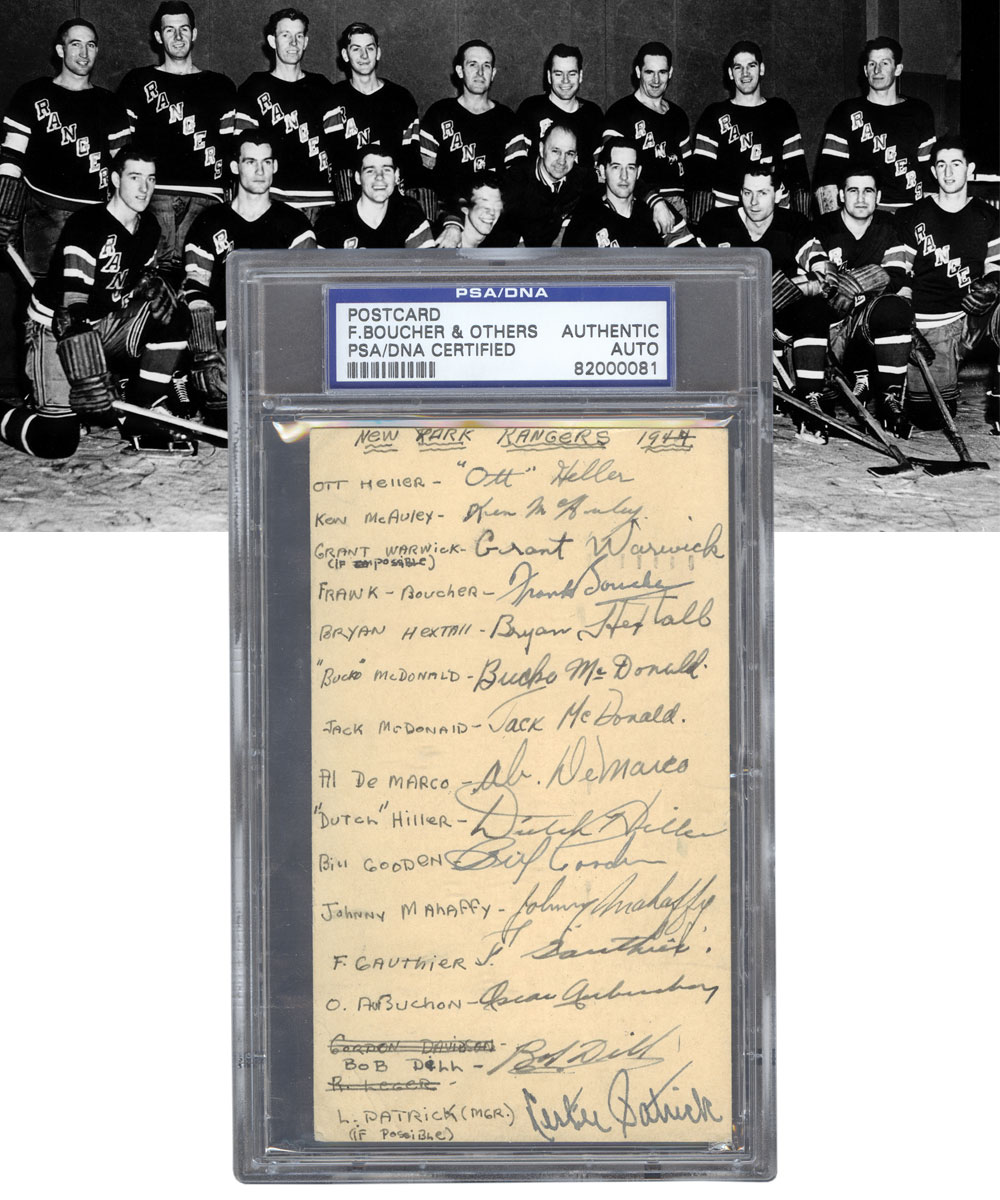 RANGERS
RANGERS
RANGERS
RANGERS
RANGERS
RANGERS
PSA/DNA
POSTCARD
F.BOUCHER & OTHERS AUTHENTIC
PSA/DNA CERTIFIED AUTO
82000081
NEW YARK RANGERS 1944
OTT HELLER - "Ott" Heller
KEN McAULEY - Ken McAuley
GRANT WARWICK - Grant Warwick
(IF POSSIBLE)
FRANK - BOUCHER - Frank Boucher
BRYAN HEXTALL - Bryan Hextall
"BUCKO" McDONALD - Bucko McDonald.
JACK McDONALD - Jack McDonald.
Al De MARCO - Ab. DeMarco
"DUTCH" HILLER - Dutch Hiller
Bill GOODEN - Bill Gooden
JOHNNY MAHAFFY - Johnny Mahaffy
F. GAUTHIER F. Gauthier.
O. AUBUCHON - Oscar Aubuchon
GORDON DAVIDSON -
BOB DILL - Bob Dill
R. LEGER -
L. PATRICK (MGR.) Lester Patrick
(IF POSSIBLE)